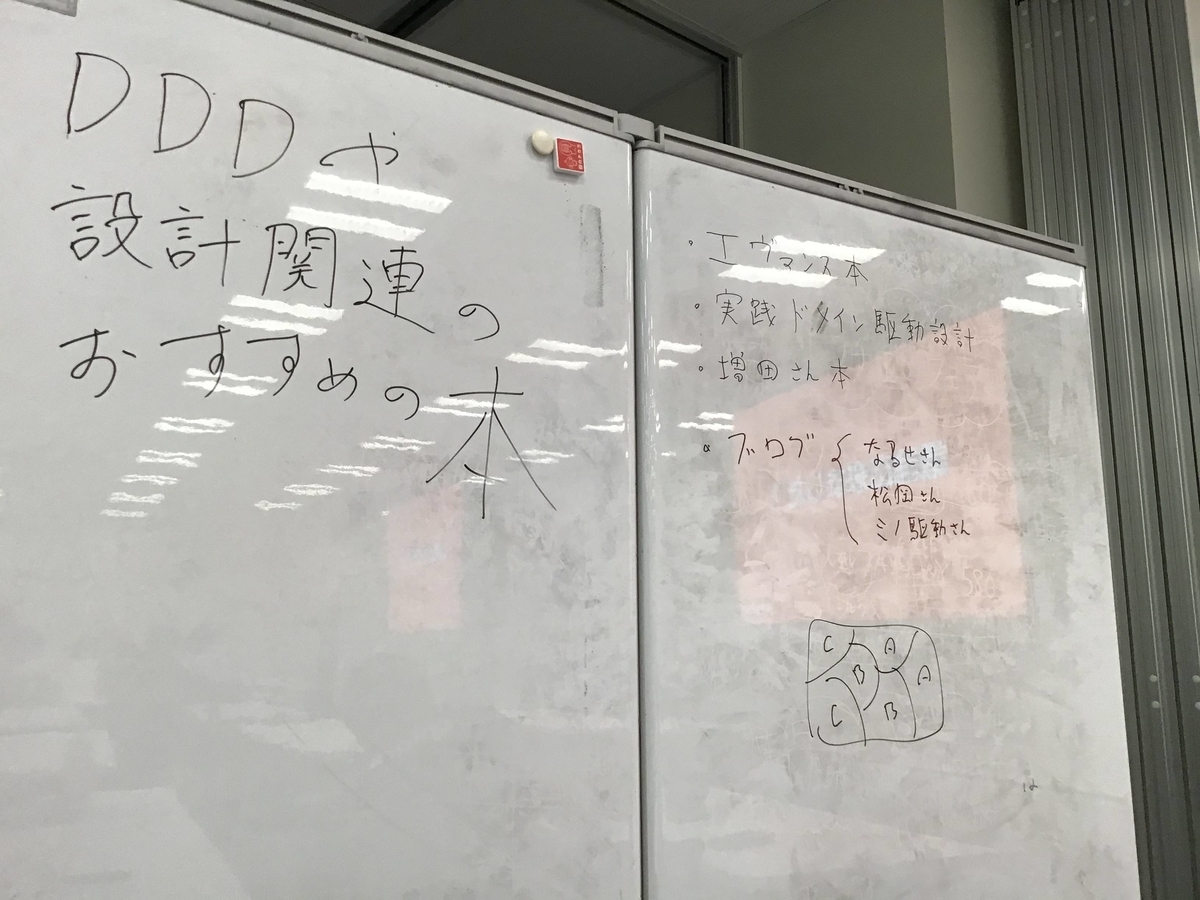 DDDや
設計関連の
おすすめの本
・エヴァンス本
・実践ドメイン駆動設計
・増田さん本
・ブログ
なるせさん
松岡さん
ミノ駆動さん
C
A
B
A
C
B
は